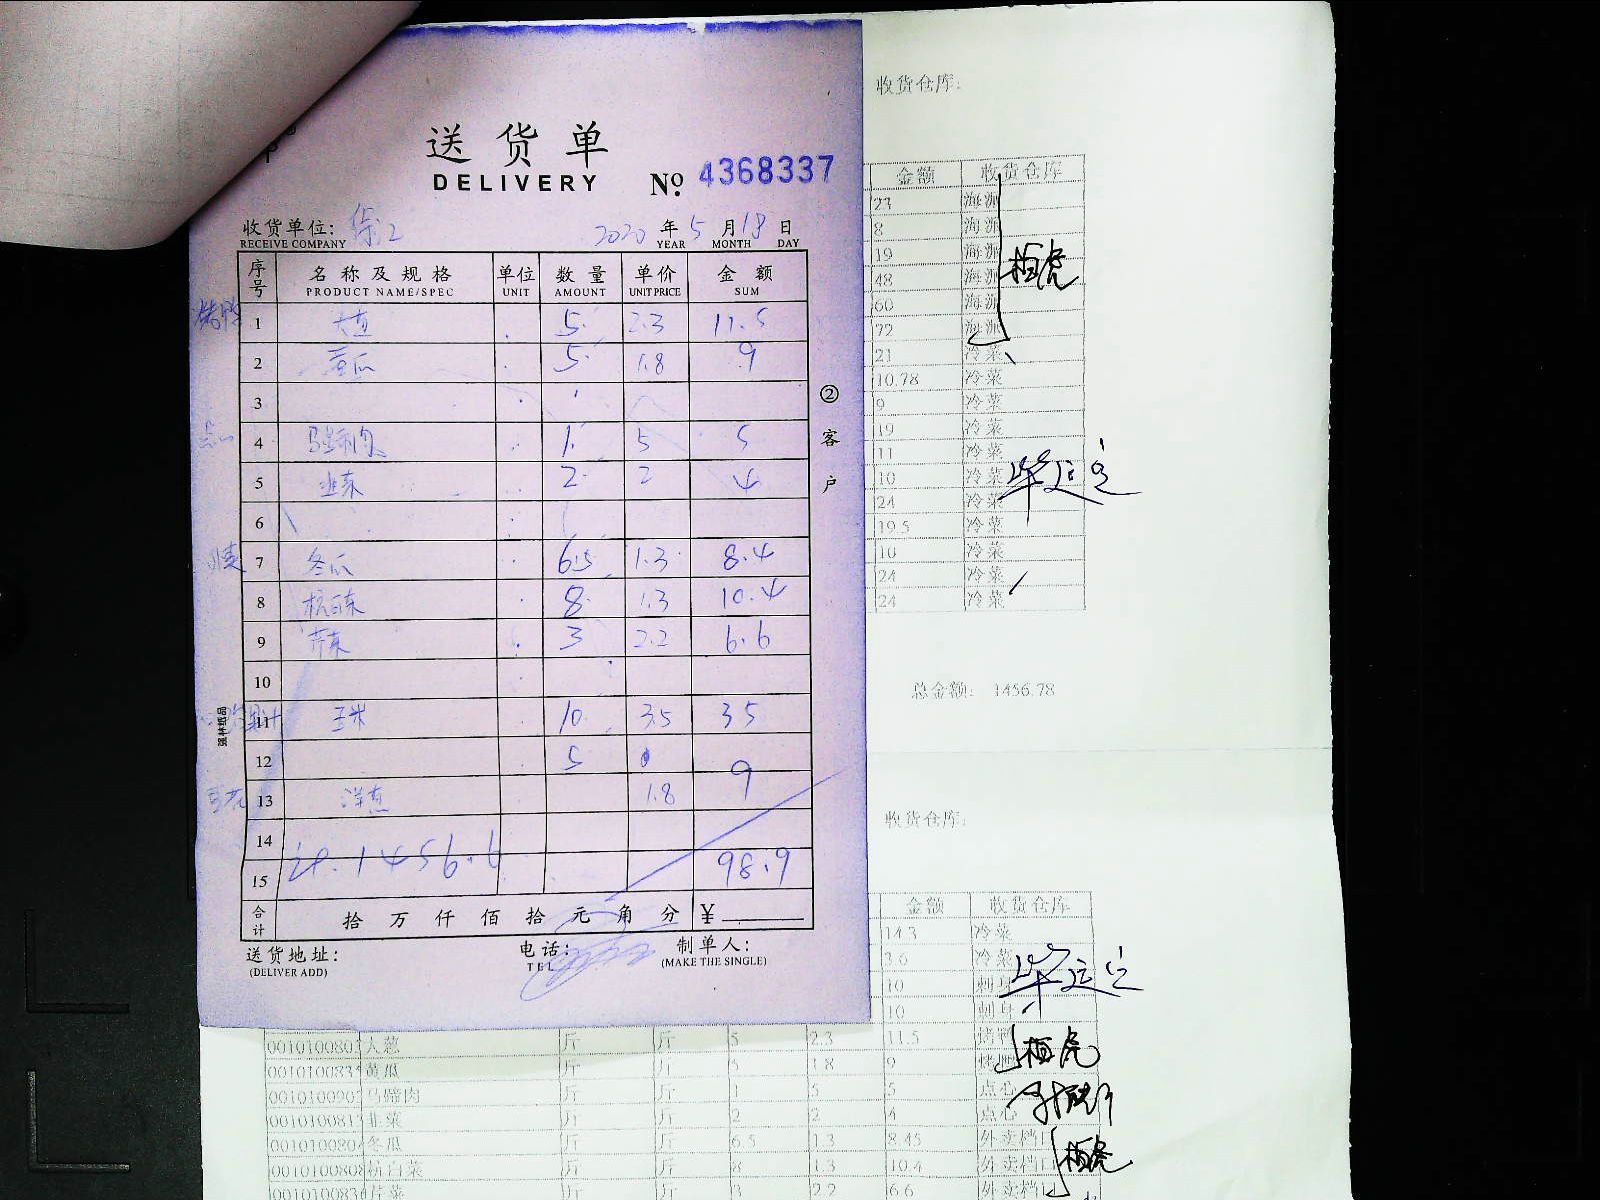 送货单
DELIVERY
№ 4368337
收货单位:
RECEIVE COMPANY
2020 年 5 月 18 日
YEAR MONTH DAY
序号 名称及规格 单位 数量 单价 金额
PRODUCT NAME/SPEC UNIT AMOUNT UNIT PRICE SUM
烤鸭 1 大葱 5 2.3 11.5
2 黄瓜 5 1.8 9
3
点心 4 马蹄肉 1 5 5
5 韭菜 2 2 4
6
7 冬瓜 6.5 1.3 8.4
8 杭白菜 8 1.3 10.4
9 芹菜 3 2.2 6.6
10
11 玉米 10 3.5 35
12 5
13 洋葱 1.8 9
14
15 计.1456.6 98.9
合计 拾 万 仟 佰 拾 元 角 分 ¥
送货地址:
(DELIVER ADD)
电话:
TEL
制单人:
(MAKE THE SINGLE)
②客户
强林纸品
收货仓库:
金额 收货仓库
23 海派
8 海派
19 海派
48 海派
60 海派
72 海派
21 冷菜
10.78 冷菜
9 冷菜
19 冷菜
11 冷菜
10 冷菜
24 冷菜
19.5 冷菜
10 冷菜
24 冷菜
24 冷菜
总金额: 1456.78
收货仓库:
金额 收货仓库
14.3 冷菜
3.6 冷菜
10 刺身
10 刺身
大葱 斤 斤 5 2.3 11.5 烤鸭
黄瓜 斤 斤 5 1.8 9 烤鸭
马蹄肉 斤 斤 1 5 5 点心
韭菜 斤 斤 2 2 4 点心
冬瓜 斤 斤 6.5 1.3 8.45 外卖档口
杭白菜 斤 斤 8 1.3 10.4 外卖档口
芹菜 斤 斤 3 2.2 6.6 外卖档口